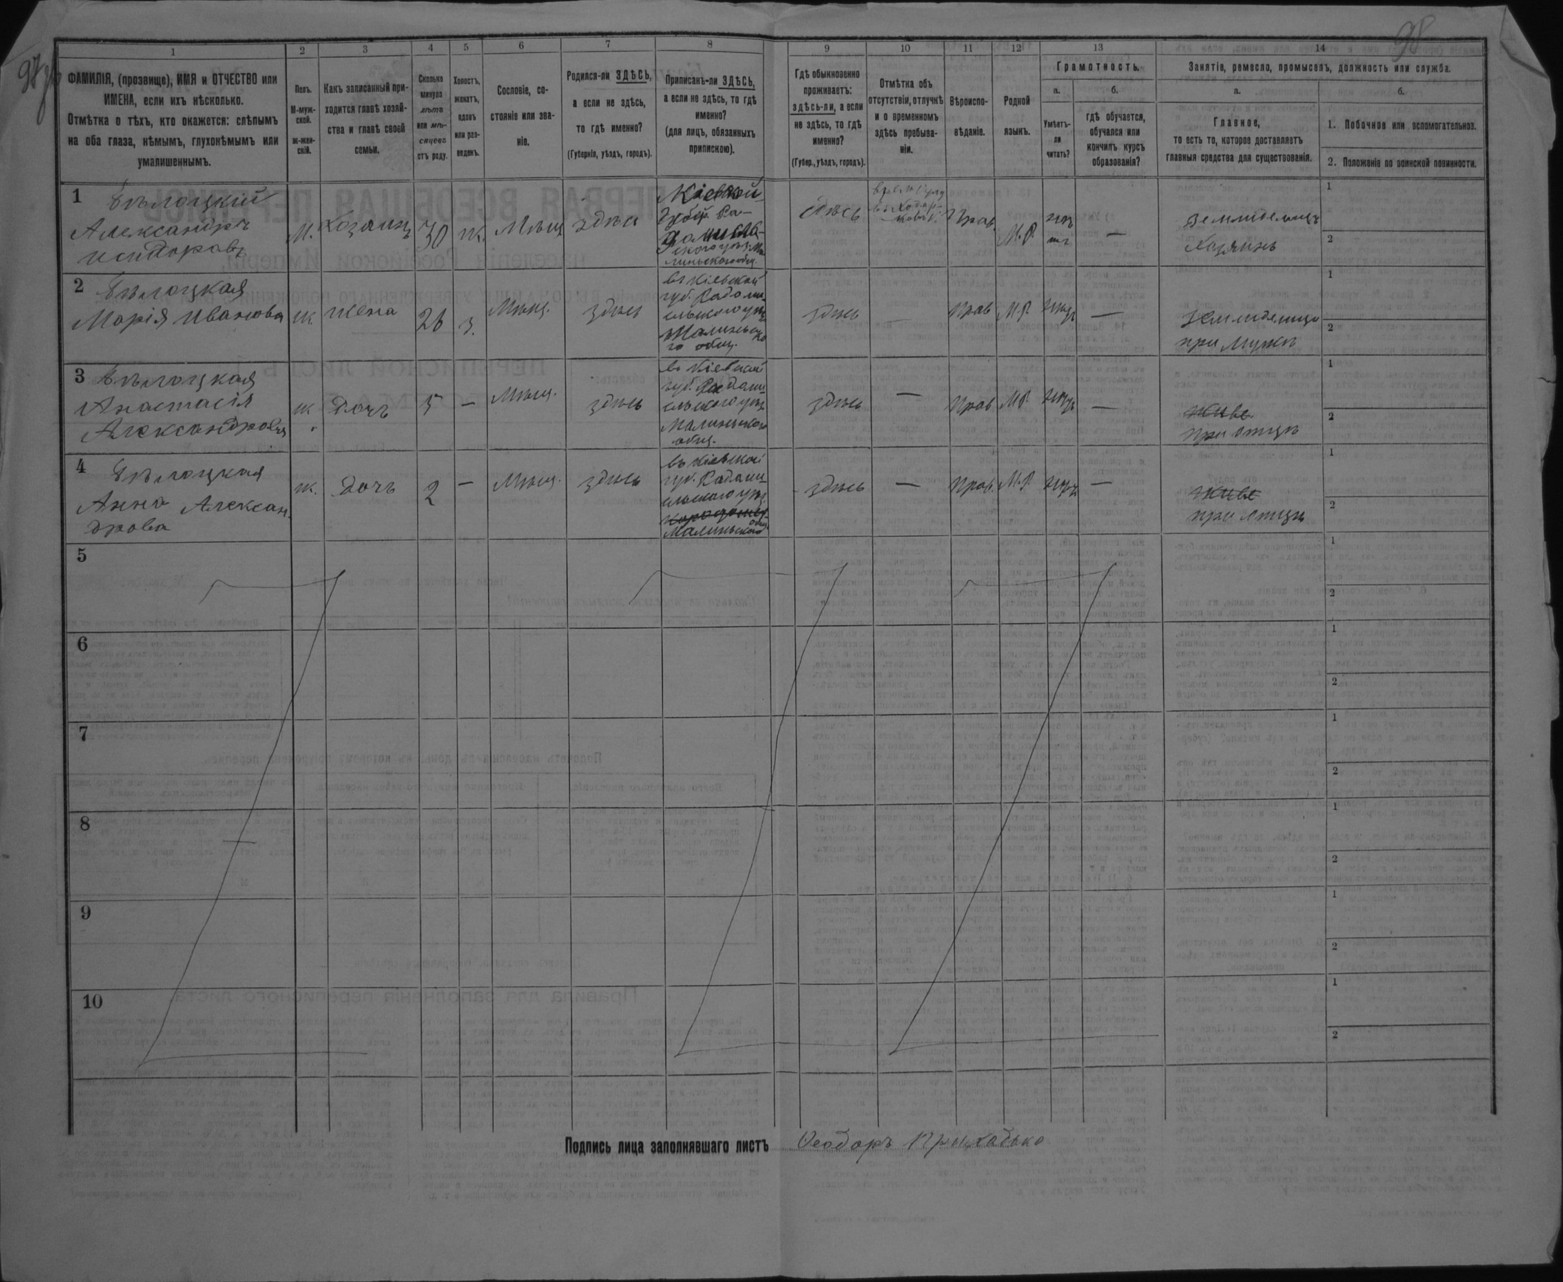 98
1
2
3
4
5
6
7
8
9
10
11
12
13
14
ФАМИЛІЯ, (прозвище), ИМЯ и ОТЧЕСТВО или
ИМЕНА, если ихъ нѣсколько.
Отмѣтка о тѣхъ, кто окажется: слѣпымъ
на оба глаза, нѣмымъ, глухонѣмымъ или
умалишеннымъ.
Полъ.
М-муж-
ской.
ж-жен-
скій.
Какъ записанный при-
ходится главѣ хозяй-
ства и главѣ своей
семьи.
Сколько
минуло
лѣтъ
или мѣ-
сяцевъ
отъ роду.
Холостъ,
женатъ,
вдовъ
или раз-
веденъ.
Сословіе, со-
стояніе или зва-
ніе.
Родился-ли ЗДѢСЬ,
а если не здѣсь,
то гдѣ именно?
(Губернія, уѣздъ, городъ).
Приписанъ-ли ЗДѢСЬ,
а если не здѣсь, то гдѣ
именно?
(для лицъ, обязанныхъ
припискою).
Гдѣ обыкновенно
проживаетъ:
здѣсь-ли, а если
не здѣсь, то гдѣ
именно?
(Губер., уѣздъ, городъ).
Отмѣтка объ
отсутствіи, отлучкѣ
и о временномъ
здѣсь пребыва-
ніи.
Вѣроиспо-
вѣданіе.
Родной
языкъ.
Грамотность.
а.
Умѣетъ-
ли
читать?
б.
гдѣ обучается,
обучался или
кончилъ курсъ
образованія?
Занятія, ремесло, промыселъ, должность или служба.
а.
Главное,
то есть то, которое доставляетъ
главныя средства для существованія.
б.
1. Побочное или вспомогательное.
2. Положеніе по воинской повинности.
1 Бѣлоцкій
Александръ
Исидоровъ
М. Хозяинъ 30 ж. Мѣщ здѣсь
Кіевской
губ. Ра-
домысль-
скогоуѣз. Ма
линьскаго общ
здѣсь
Прав М.Р нѣтъ —
Земледѣлецъ
хозяинъ
1
2
2 Бѣлоцкая
Марія Иванова
ж жена 26 з. Мѣщ. здѣсь
въ Кіевской
губ. Радомы
сльскогоуѣз
Малиньска
го общ.
здѣсь — Прав М.Р нѣтъ —
Земледѣлица
при мужѣ
1
2
3 Бѣлоцкая
Анастасія
Александрова
ж Дочь 5 — Мѣщ. здѣсь
въ Кіевской
губ. Радомы
сльскогоуѣз
Малиньского
общ.
здѣсь — Прав М.Р нѣтъ —
живе
при отцѣ
1
2
4 Бѣлоцкая
Анна Алексан
дрова
ж. Дочь 2 — Мѣщ. здѣсь
въ Кіевской
губ. Радомы
сльскогоуѣз
Малиньского общ
здѣсь — Прав. М.Р нѣтъ —
живе
при отцѣ
1
2
5
1
2
6
1
2
7
1
2
8
1
2
9
1
2
10
1
2
Подпись лица заполнявшаго листъ Ѳеодоръ Приходько